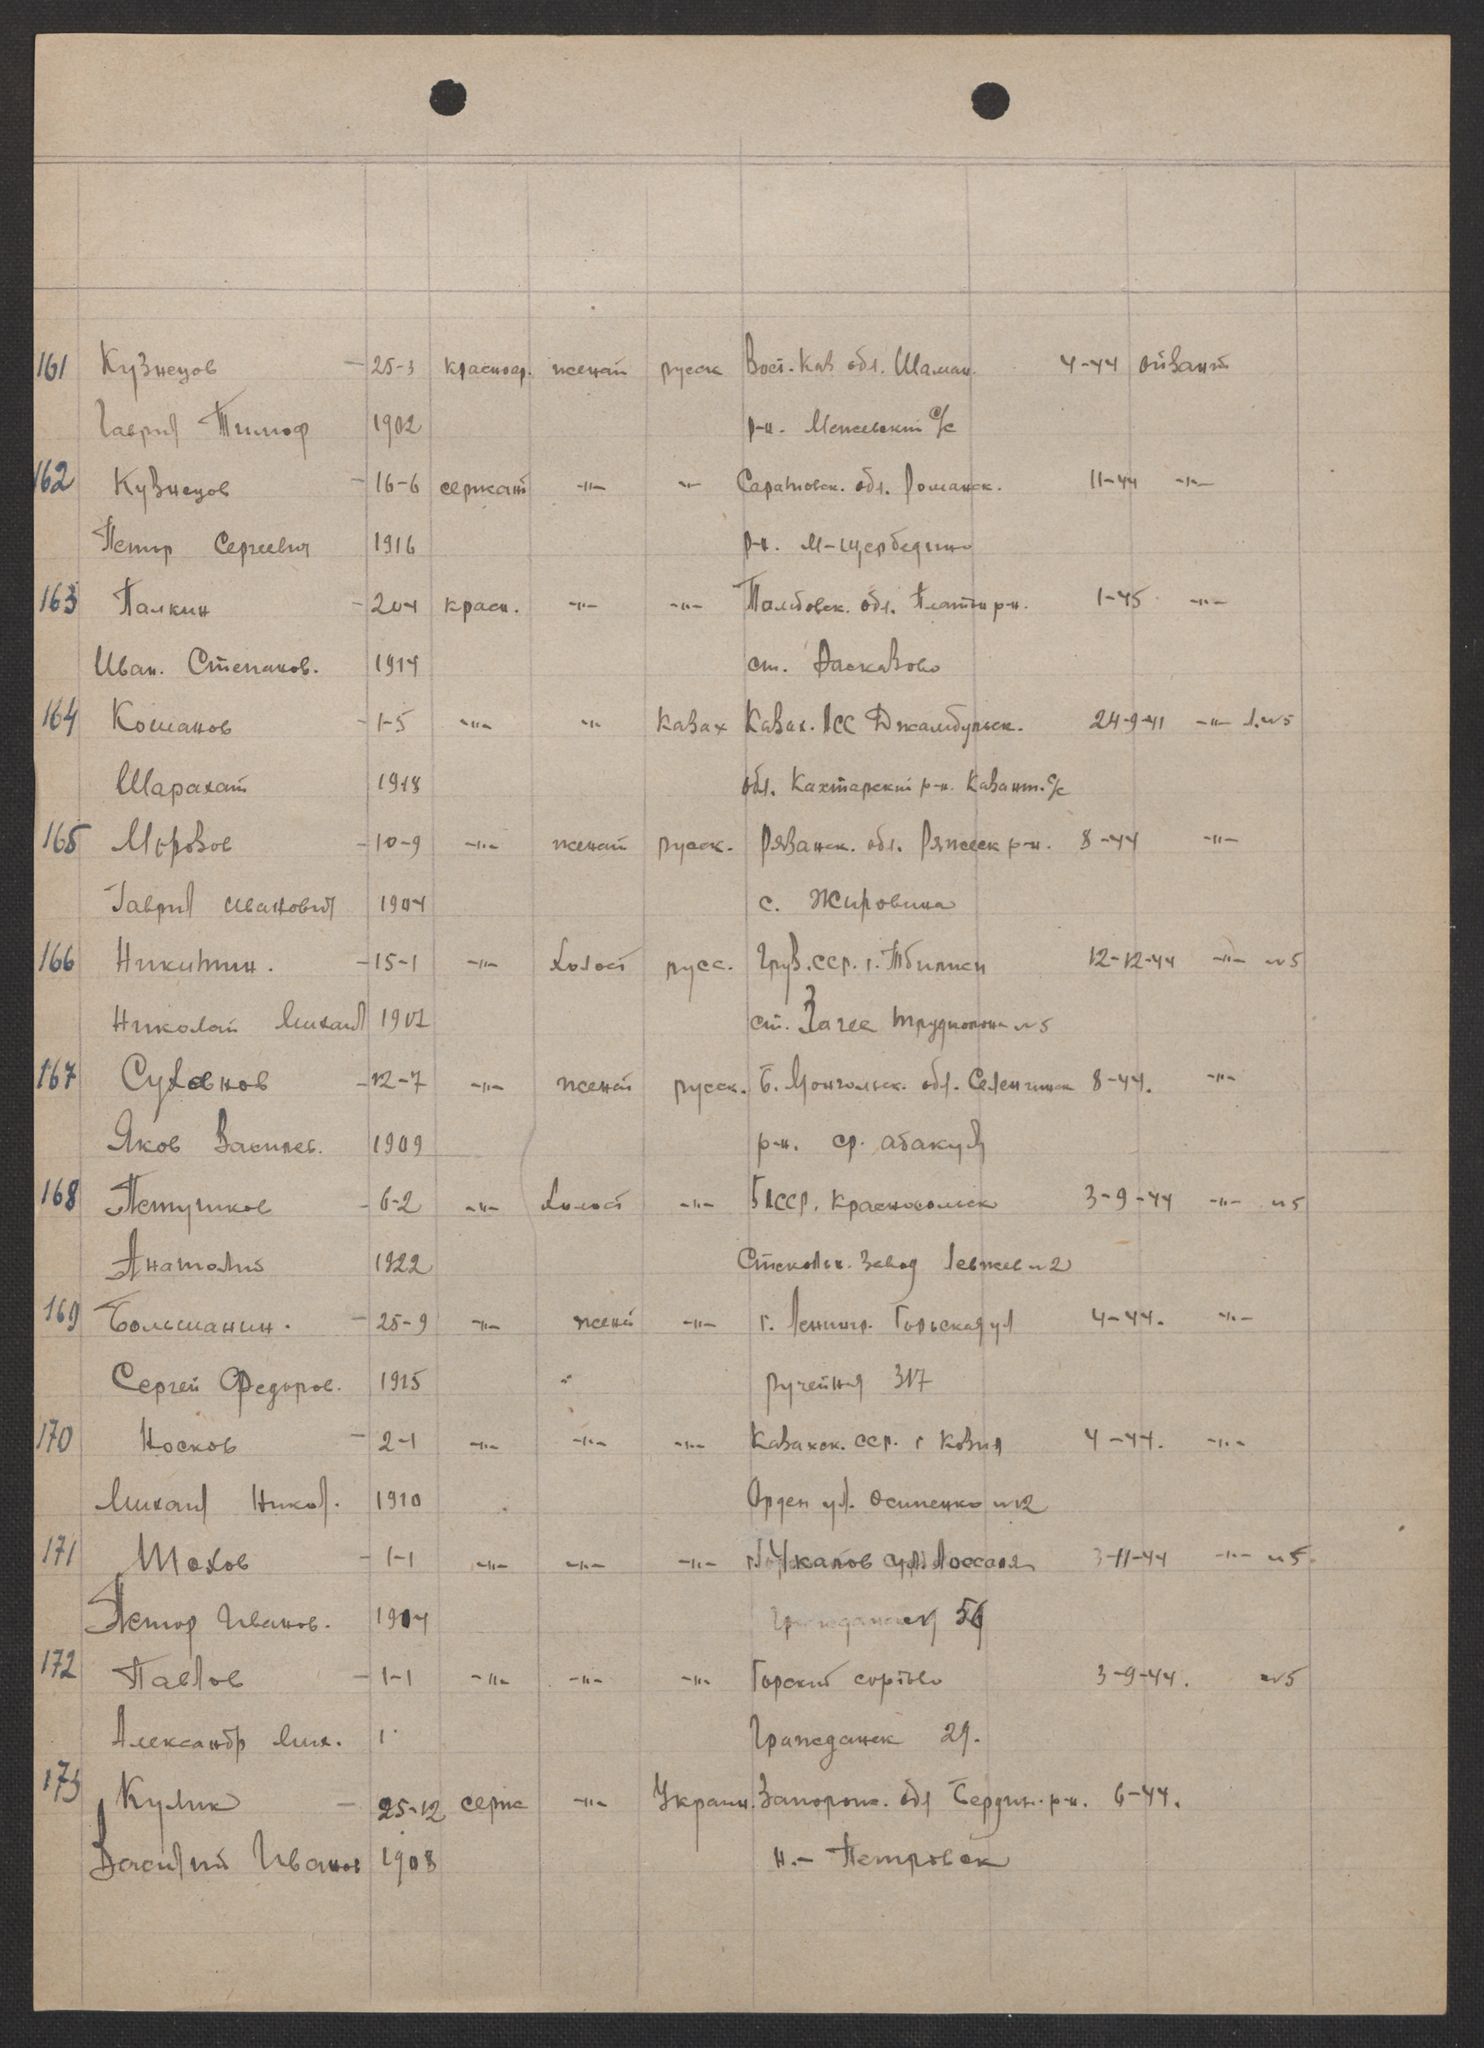 161 Кузнецов - 25-3 красноар. женат русск Вост. Каз обл. Шаман. 4-44 ойвант
Гаврил Тимоф 1902 р-н. с/с
162 Кузнецов - 16-6 сержант -"- -"- Саратовск. обл. Романск. 11-44 -"-
Петр Сергеевич 1916 р-н. М-щербедино
163 Палкин - 20-4 красн. -"- -"- Тамбовск. обл. Платин р-н. 1-45 -"-
Иван. Степанов. 1914 ст. Расказово
164 Кошанов - 1-5 -"- -"- Казах Казах. ССС Джамбульск. 24-9-41 -"- л.№5
Шарахат 1918 обл. Кахтарский р-н. Казант. с/с
165 Морозов - 10-9 -"- женат русск. Рязанск. обл. Ряжсск р-н. 8-44 -"-
Гаврил иванович 1904 с. Жировина
166 Никитин. - 15-1 -"- холост русс. Груз. сср. г. Тбилиси 12-12-44 -"- №5
Николай Михаил 1907 ст. Загес №5
167 Суханов - 12-7 -"- женат русск. Б. Монгольск. обл. Селенгинск 8-44. -"-
Яков Васильев. 1909 р-н. ср. абакул
168 Петушков - 6-2 -"- холост -"- БССР. Красносельск 3-9-44 -"- №5
Анатолий 1922 Стекольн. Завод №2
169 Большанин. - 25-9 -"- женат -"- г. Ленингр. Горьская ул 4-44. -"-
Сергей Федоров. 1915 " ручейная 317
170 Носков - 2-1 -"- -"- -"- Казахск. сср. г 4-44. -"-
Михаил Никол. 1910 Орден ул. Осипенко №12
171 Шохов - 1-1 -"- -"- -"- г. Чкалов 3-11-44 -"- №5.
Петор Иванов. 1904 56
172 Павлов - 1-1 -"- -"- -"- Горский сортово 3-9-44. №5
Александр Мих. 1 Гражданск 29.
173 Кулик - 25-12 серж -"- Украин. Запорож. обл Бердян. р-н. 6-44.
Василий Иванов 1908 н.- Петровск